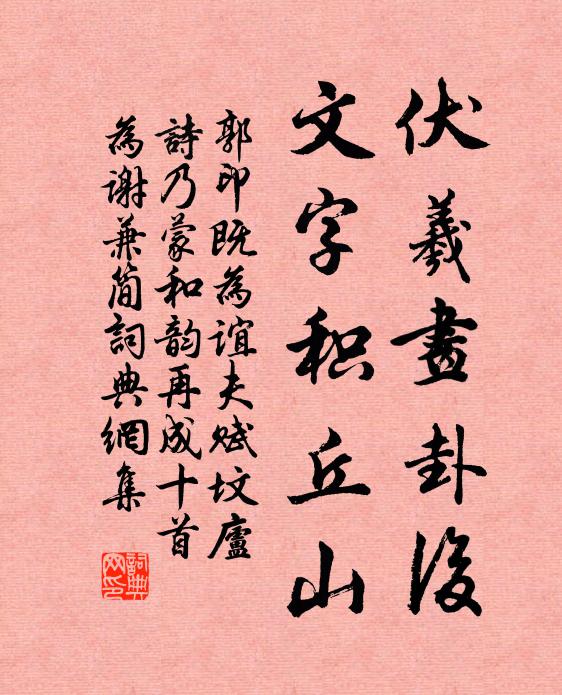 伏羲畫卦後
文字积丘山
郭印既為誼夫赋坟廬
詩乃蒙和韵再成十首
為谢兼简詞典網集
詞典网印